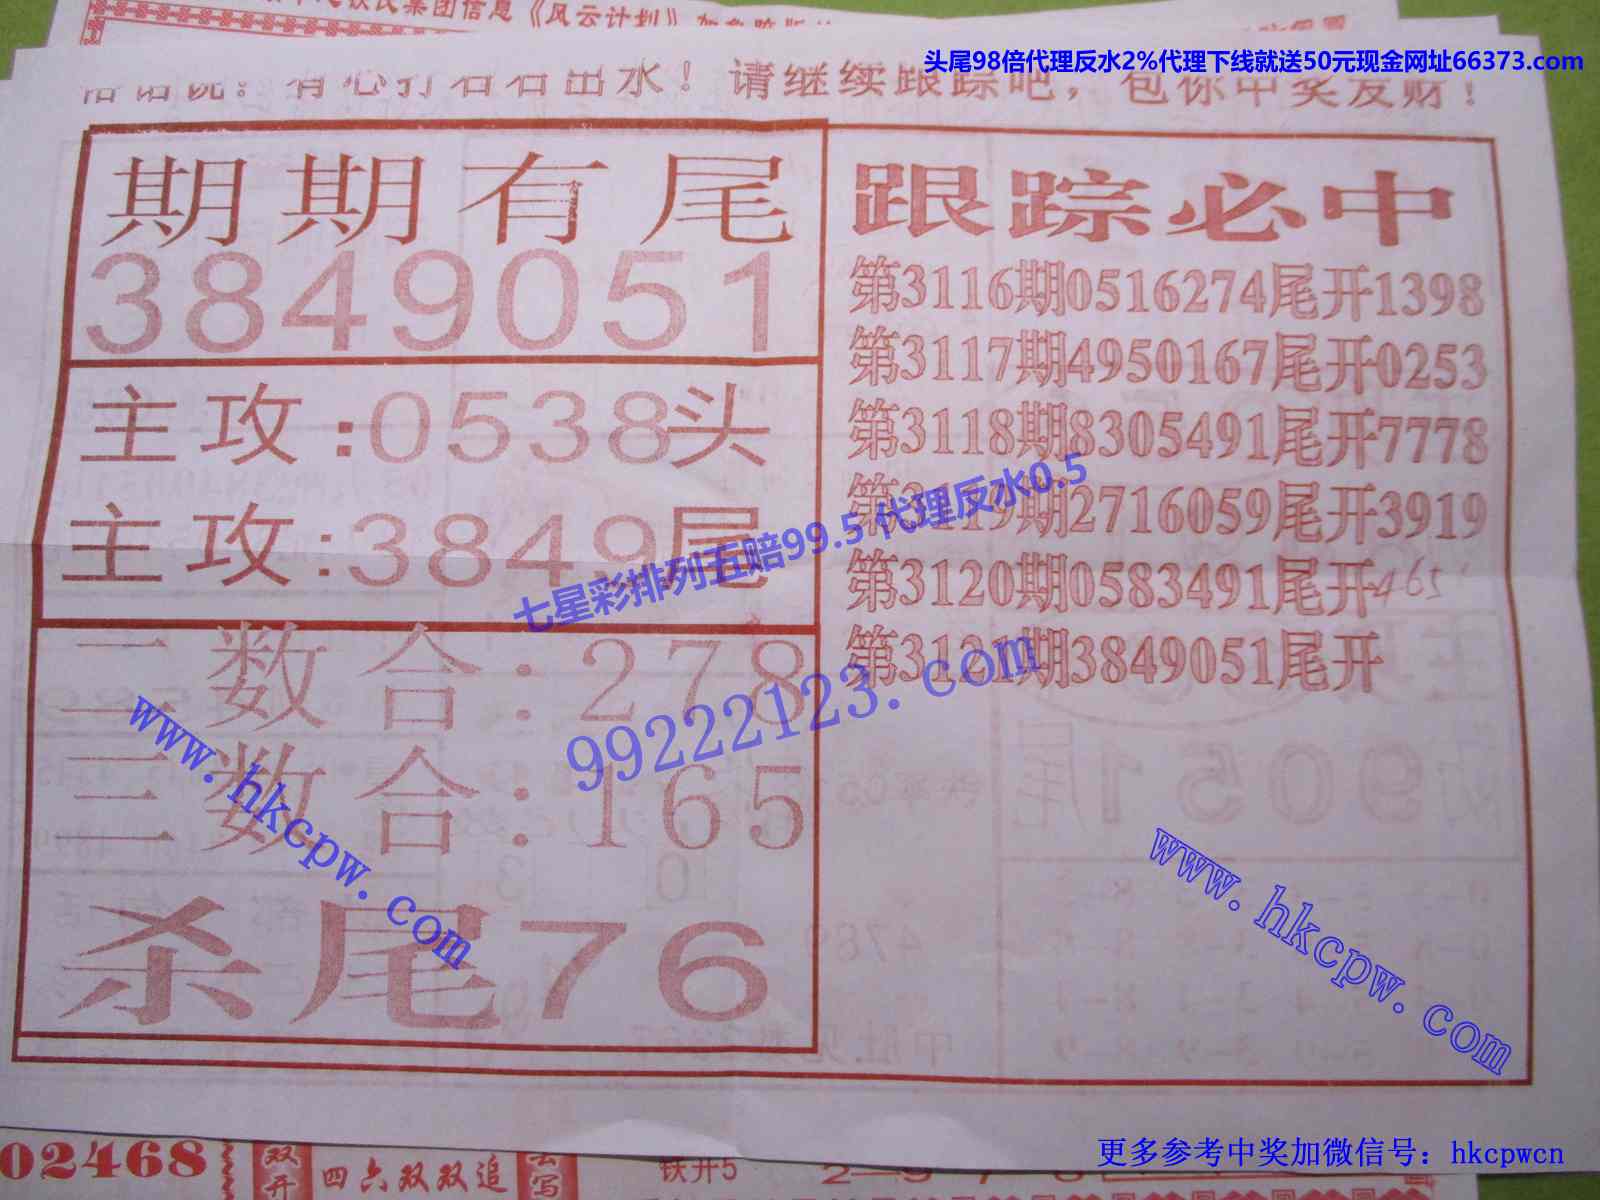 集团信息《风云计划》
头尾98倍代理反水2%代理下线就送50元现金网址66373.com
有心打石石出水！请继续跟踪吧，包你中奖发财！
期期有尾
3849051
主攻:0538头
主攻:3849尾
二数合:278
三数合:165
杀尾76
跟踪必中
第3116期0516274尾开1398
第3117期4950167尾开0253
第3118期8305491尾开7778
第3119期2716059尾开3919
第3120期0583491尾开465
第3121期3849051尾开
七星彩排列五赔99.5 代理反水0.5
99222123.com
www.hkcpw.com
www.hkcpw.com
02468
双开
四六双双追
铁开5
更多参考中奖加微信号：hkcpwcn